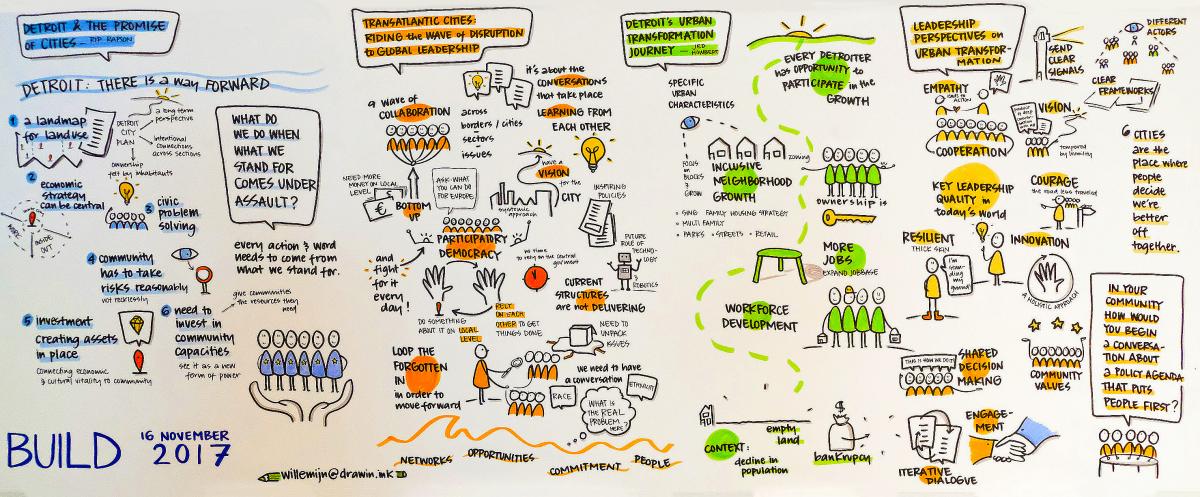 DETROIT & THE PROMISE
OF CITIES - RIP RAPSON
DETROIT: THERE IS a way FORWARD
1 a landmap
for landuse
DETROIT
CITY
PLAN
a long term
perspective
intentional
connections
across sections
ownership
felt by inhabitants
2 economic
strategy
can be central
INSIDE
OUT
3 civic
problem
solving
4 community
has to take
risks reasonably
not recklessly
5 investment
creating assets
in place
connecting economic
& cultural vitality to community
6 need to
invest in
community
capacities
see it as a new
form of power
give communities
the resources they
need
WHAT DO
WE DO WHEN
WHAT WE
STAND FOR
COMES UNDER
ASSAULT?
every action & word
needs to come from
what we stand for.
BUILD
16 NOVEMBER
2017
willemijn@drawin.ink
TRANSATLANTIC CITIES:
RIDING the WAVE of DISRUPTION
to GLOBAL LEADERSHIP
a wave of
COLLABORATION
across
borders / cities
sectors
issues
it's about the
CONVERSATIONS
that take place
LEARNING FROM
EACH OTHER
have a
VISION
for the
CITY
systematic
approach
INSPIRING
POLICIES
NEED MORE
MONEY ON LOCAL
LEVEL
€
BOTTOM
UP
ASK: WHAT
YOU CAN DO
FOR EUROPE!
PARTICIPATORY
DEMOCRACY
and
fight
for it
every
day!
no time
to rely on the central
government
FUTURE
ROLE OF
TECHNO-
LOGY
& ROBOTICS
DO SOMETHING
ABOUT IT ON LOCAL
LEVEL
RELY
ON EACH
OTHER TO GET
THINGS DONE
CURRENT
STRUCTURES
are not DELIVERING
NEED TO
UNPACK
ISSUES
LOOP THE
FORGOTTEN
IN
in order to
move forward
we need to have
a conversation
RACE
ETHNICITY
WHAT IS
THE REAL
PROBLEM
HERE?
NETWORKS
OPPORTUNITIES
COMMITMENT
PEOPLE
DETROIT'S URBAN
TRANSFORMATION
JOURNEY - JED HOWBERT
SPECIFIC
URBAN
CHARACTERISTICS
EVERY DETROITER
has OPPORTUNITY to
PARTICIPATE in the
GROWTH
FOCUS
on
BLOCKS
&
GROW
zoning
INCLUSIVE
NEIGHBORHOOD
GROWTH
• SING. FAMILY HOUSING STRATEGY
• MULTI FAMILY
• PARKS • STREETS • RETAIL
ownership is
MORE
JOBS
EXPAND JOBBASE
WORKFORCE
DEVELOPMENT
empty
land
CONTEXT:
decline in
population
$
bankrupcy
LEADERSHIP
PERSPECTIVES on
URBAN TRANSFOR-
MATION
SEND
CLEAR
SIGNALS
DIFFERENT
ACTORS
CLEAR
FRAMEWORKS
EMPATHY
leads to
ACTION
COOPERATION
VISION
tempered
by humility
KEY LEADERSHIP
QUALITY in
today's world
COURAGE
the road less traveled
RESILIENT
THICK SKIN
I'm
stan-
ding my
ground!
INNOVATION
a HOLISTIC APPROACH
THIS IS HOW WE DO IT!
SHARED
DECISION
MAKING
COMMUNITY
VALUES
ENGAGE-
MENT
ITERATIVE
DIALOGUE
6 CITIES
are the
place where
people
decide
we're
better
off
together.
IN YOUR
COMMUNITY
HOW WOULD
YOU BEGIN
a CONVERSA-
TION ABOUT
a POLICY AGENDA
THAT PUTS
PEOPLE FIRST?